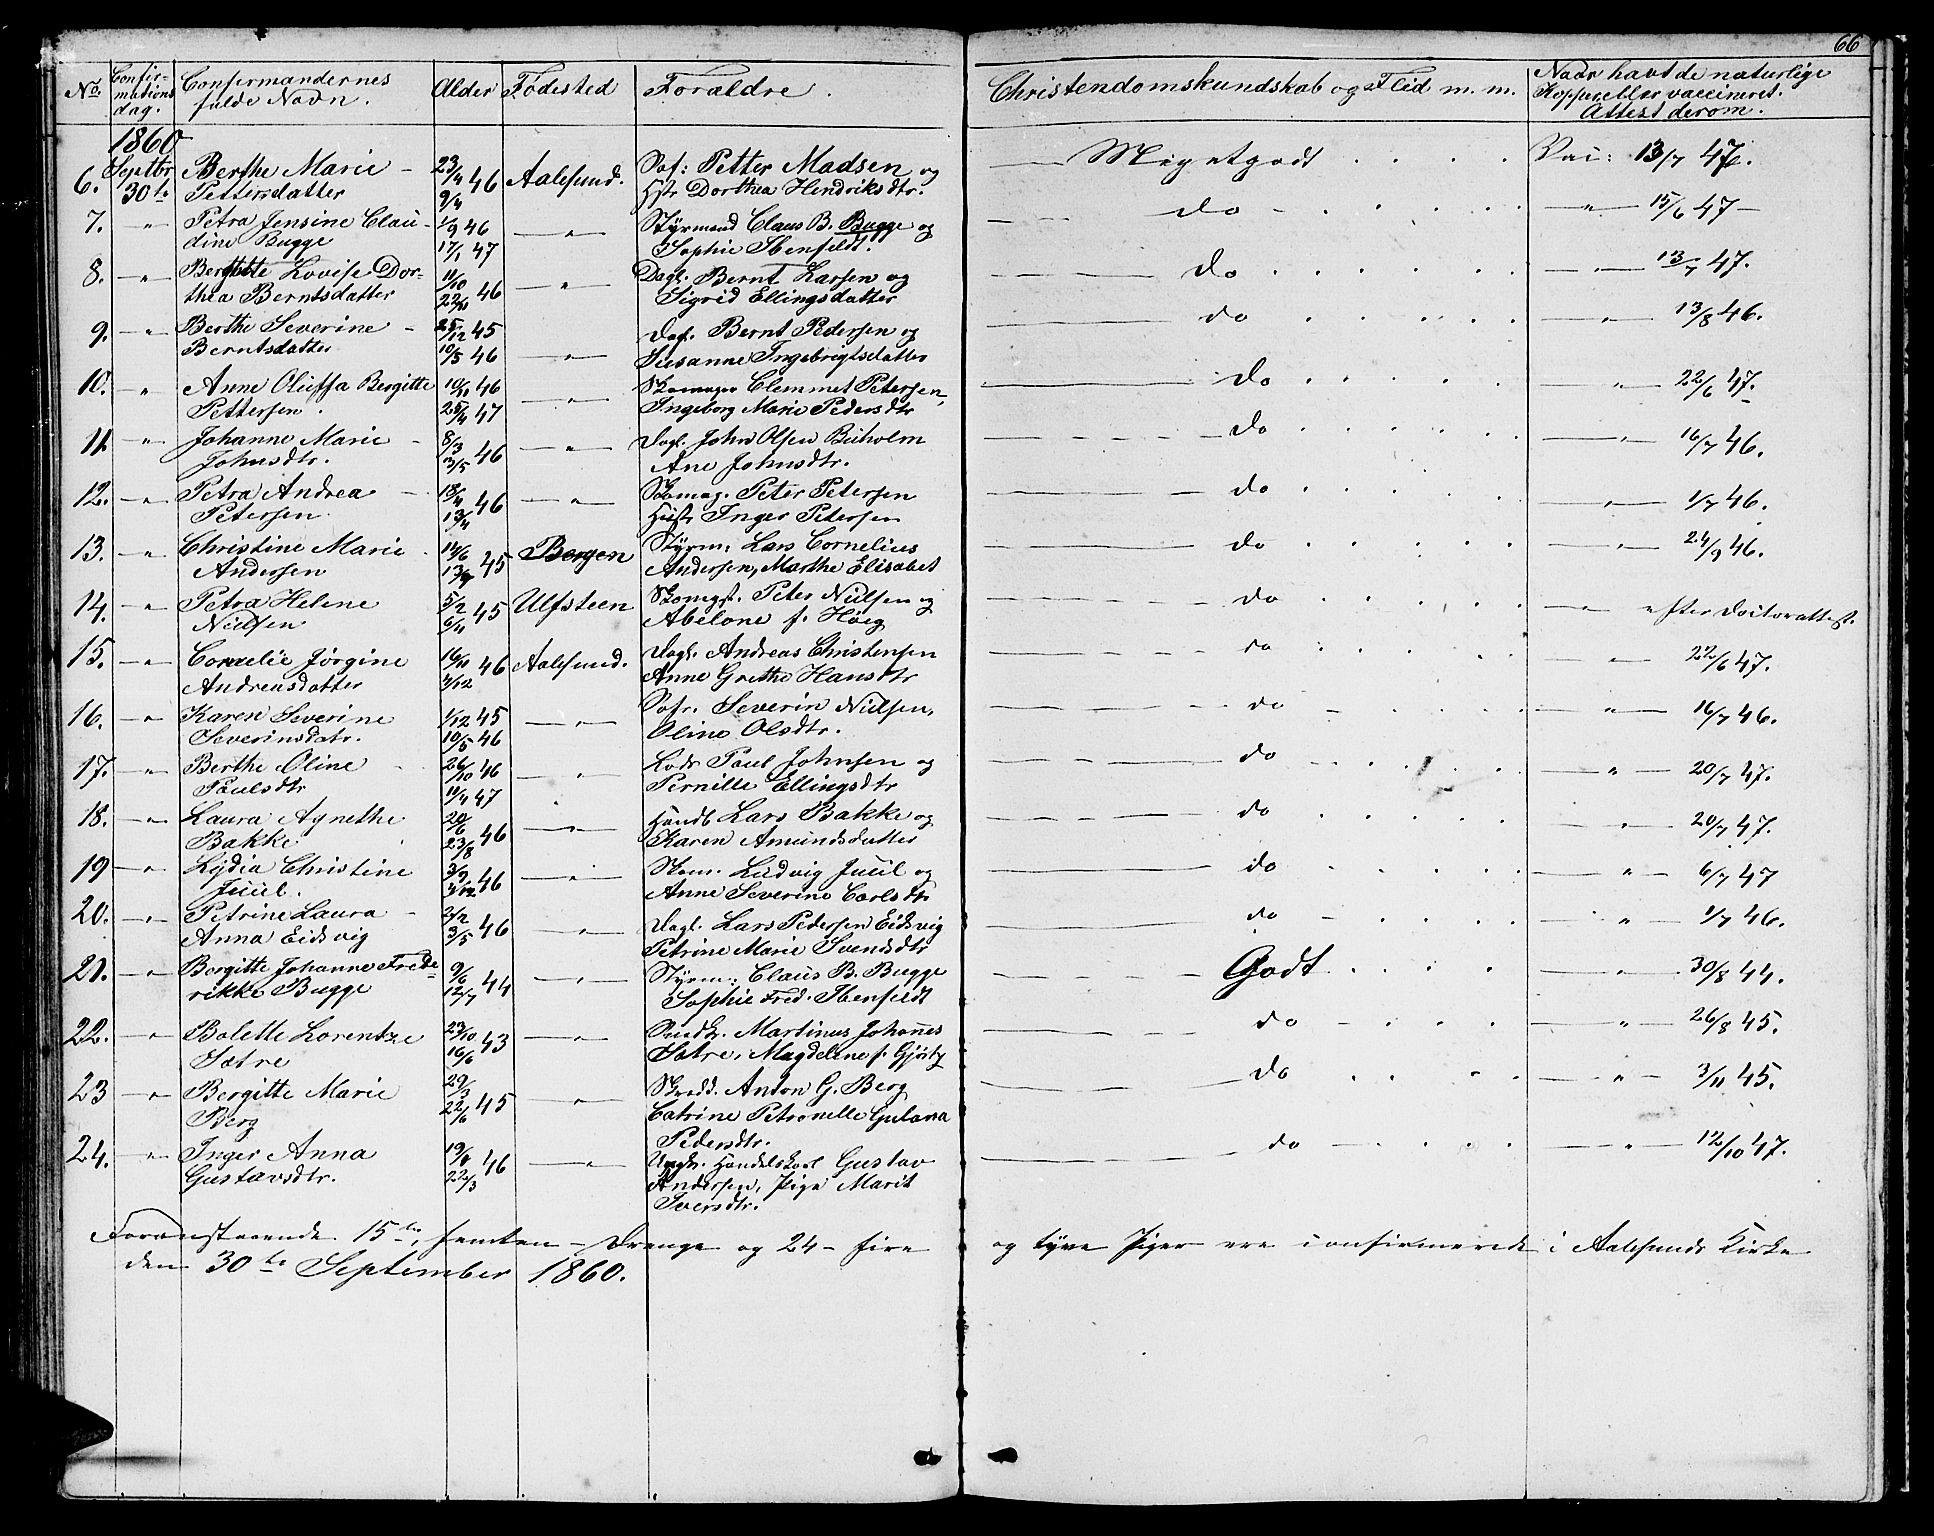 66
No. Confirmations dag. Confirmandernes fulde Navn. Alder Fødested Forældre. Christendomskundskab og Flid m. m. Naar havt de naturlige Kopper eller vaccineret. Attest derom.
1860
6. Septbr 30te Berthe Marie Pettersdatter 23/4 46 9/4 Aalesund. Petter Madsen og Hstr Dorthea Hendriksdtr. Megetgodt Vac: 13/7 47.
7. " Petra Jensine Claudine Bugge 1/9 46 17/1 47 " Styrmand Claus B. Bugge og Sophie Ibenfeldt. do " 15/6 47
8. " Lovise Dorthea Berntsdatter 11/10 46 22/11 " Dagl. Bernt Larsen og Sigrid Ellingsdatter do " 13/7 47.
9. " Berthe Severine Berntsdatter 25/12 45 10/5 46 " Dagl. Bernt Pedersen og Susanne Ingebrigtsdatter do " 13/8 46.
10. " Anne Oluffa Bergitte Pettersen. 10/11 46 25/4 47 " Skomager Clemmet Petersen, Ingeborg Marie Pedersdtr do " 22/6 47.
11. " Johanne Marie Johnsdtr. 8/3 46 3/5 " Dagl. John Olsen Buholm Ane Johnsdtr. do " 16/7 46.
12. " Petra Andrea Petersen 18/4 46 " Skomag. Peter Petersen Hustr Inger Petersen do " 1/7 46.
13. " Christine Marie Andersen 14/6 45 Bergen Styrm. Lars Cornelius Andersen, Marthe Elisabet do " 24/9 46.
14. " Petra Helene Nielsen 5/2 45 6/4 Ulfsteen Peter Nielsen og Abelone f. Höeg do " efter Doctorattest.
15. " Cornelie Jørgine Andreasdatter 16/10 46 Aalesund. Dagl. Andreas Christensen Anne Grethe Hansdtr do " 22/6 47.
16. " Karen Severine Severinsdatr. 1/12 45 10/5 46 " Severin Nielsen, Oline Olsdtr. do " 16/7 46.
17. " Berthe Oline Paulsdtr 26/10 46 11/4 47 " Lods Paul Johnsen og Pernille Ellingsdtr do " 20/7 47.
18. " Laura Agnethe Bakke 20/6 46 23/8 " Handl Lars Bakke og Karen Amundsdatter do " 20/7 47.
19 " Lydia Christine Juul. 3/9 46 " Skom. Ludvig Juul og Anne Severine Carlsdtr do " 6/7 47
20. " Petrine Laura Anna Eidsvig 2/2 46 3/5 " Dagl. Lars Pedersen Eidsvig Petrine Marie Svendsdtr do " 1/7 46.
21. " Bergitte Johanne Frederikke Bugge 9/6 44 12/7 " Styrm. Claus B. Bugge Sophie Fred. Ibenfeldt Godt " 30/8 44.
22. " Bolette Lorentze Sætre 23/10 43 16/6 " Martinus Johannes Sætre, Magdelene f. do " 26/8 45.
23 " Bergitte Marie Berg 29/3 45 22/6 " Skredd. Anton G. Berg Catrine Petronelle Pedersdtr. do " 3/11 45.
24. " Inger Anna Gustavsdtr. 46 22/3 " Ungk. Handelskarl Gustav Andersen, Pige Marit Iversdtr. do " 12/10 47.
Foranstaaende 15ten, femten Drenge og 24 fire og tyve Piger ere confirmerede i Aalesunds Kirke
den 30te September 1860.